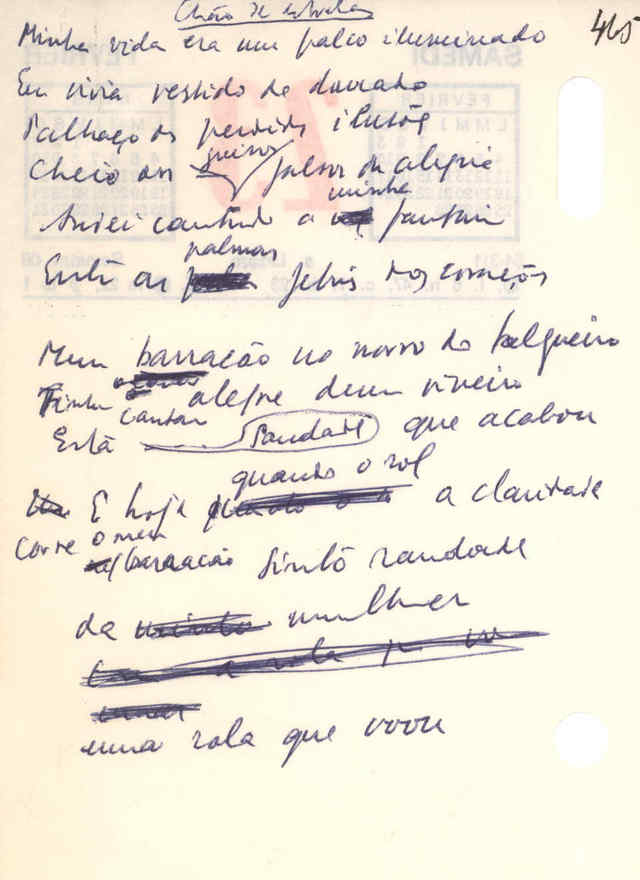 Chão de estrelas
465
Minha vida era um palco iluminado
Eu vivia vestido de dourado
Palhaço das perdidas ilusões
Cheio dos guisos falsos da alegria
Andei cantando a minha fantasia
Entre as palmas febris dos corações
Meu barracão no morro do Salgueiro
Tinha o cantar alegre de um viveiro
Está saudade que acabou
E hoje quando o sol a claridade
Corre o meu barracão sinto saudade
da mulher
uma rola que voou